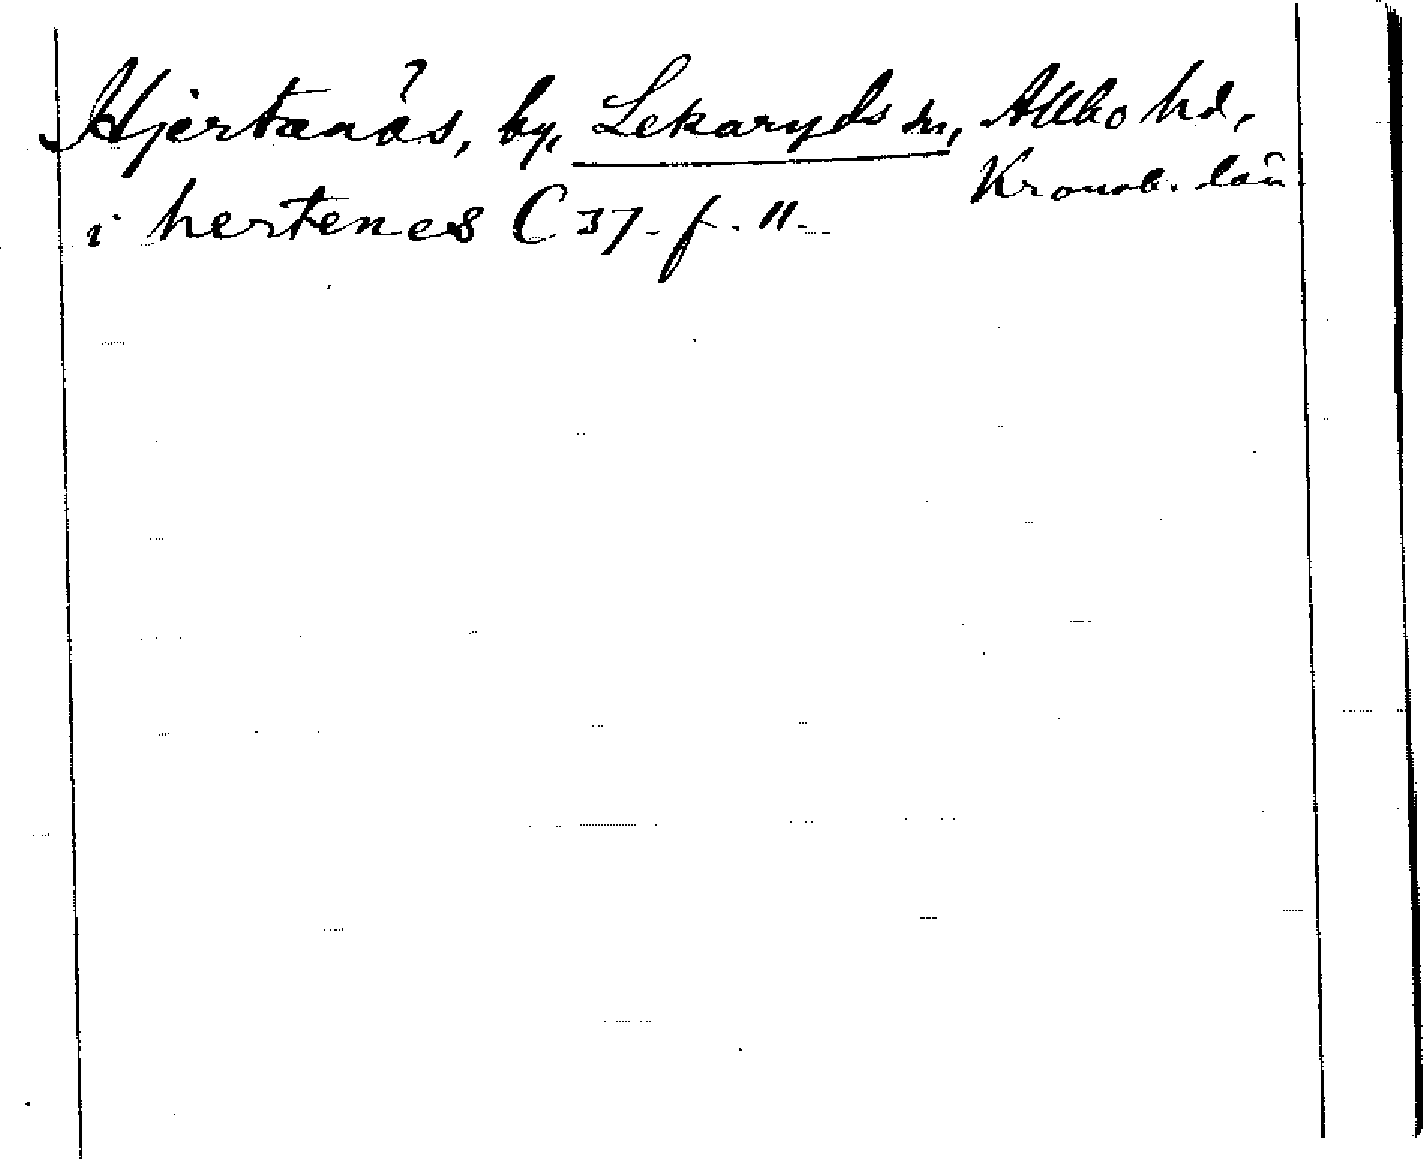 Hjertanäs, by, Lekaryds sn, Allbo hd,
Kronob. län
i hertenes C 37. f. 11.